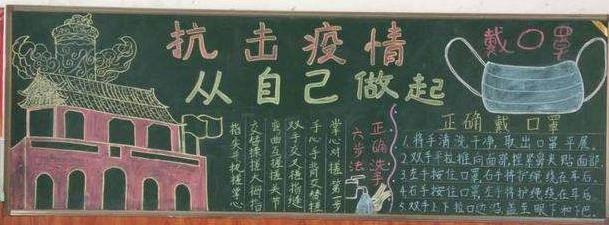 抗击疫情
从自己做起
戴口罩
正确洗手
六步法
掌心对搓第一步
手心手背交替搓
双手交叉搓指缝
弯曲互搓搓关节
交替揉搓大拇指
指尖并拢搓掌心
正确戴口罩
1.将手清洗干净,取出口罩平展。
2.双手平拉推向面部,捏紧鼻夹贴面部。
3.左手按住口罩右手将护绳绕在耳后。
4.右手按住口罩,左手将护绳绕在耳后。
5.双手上下拉口边沿盖至眼下和下巴。